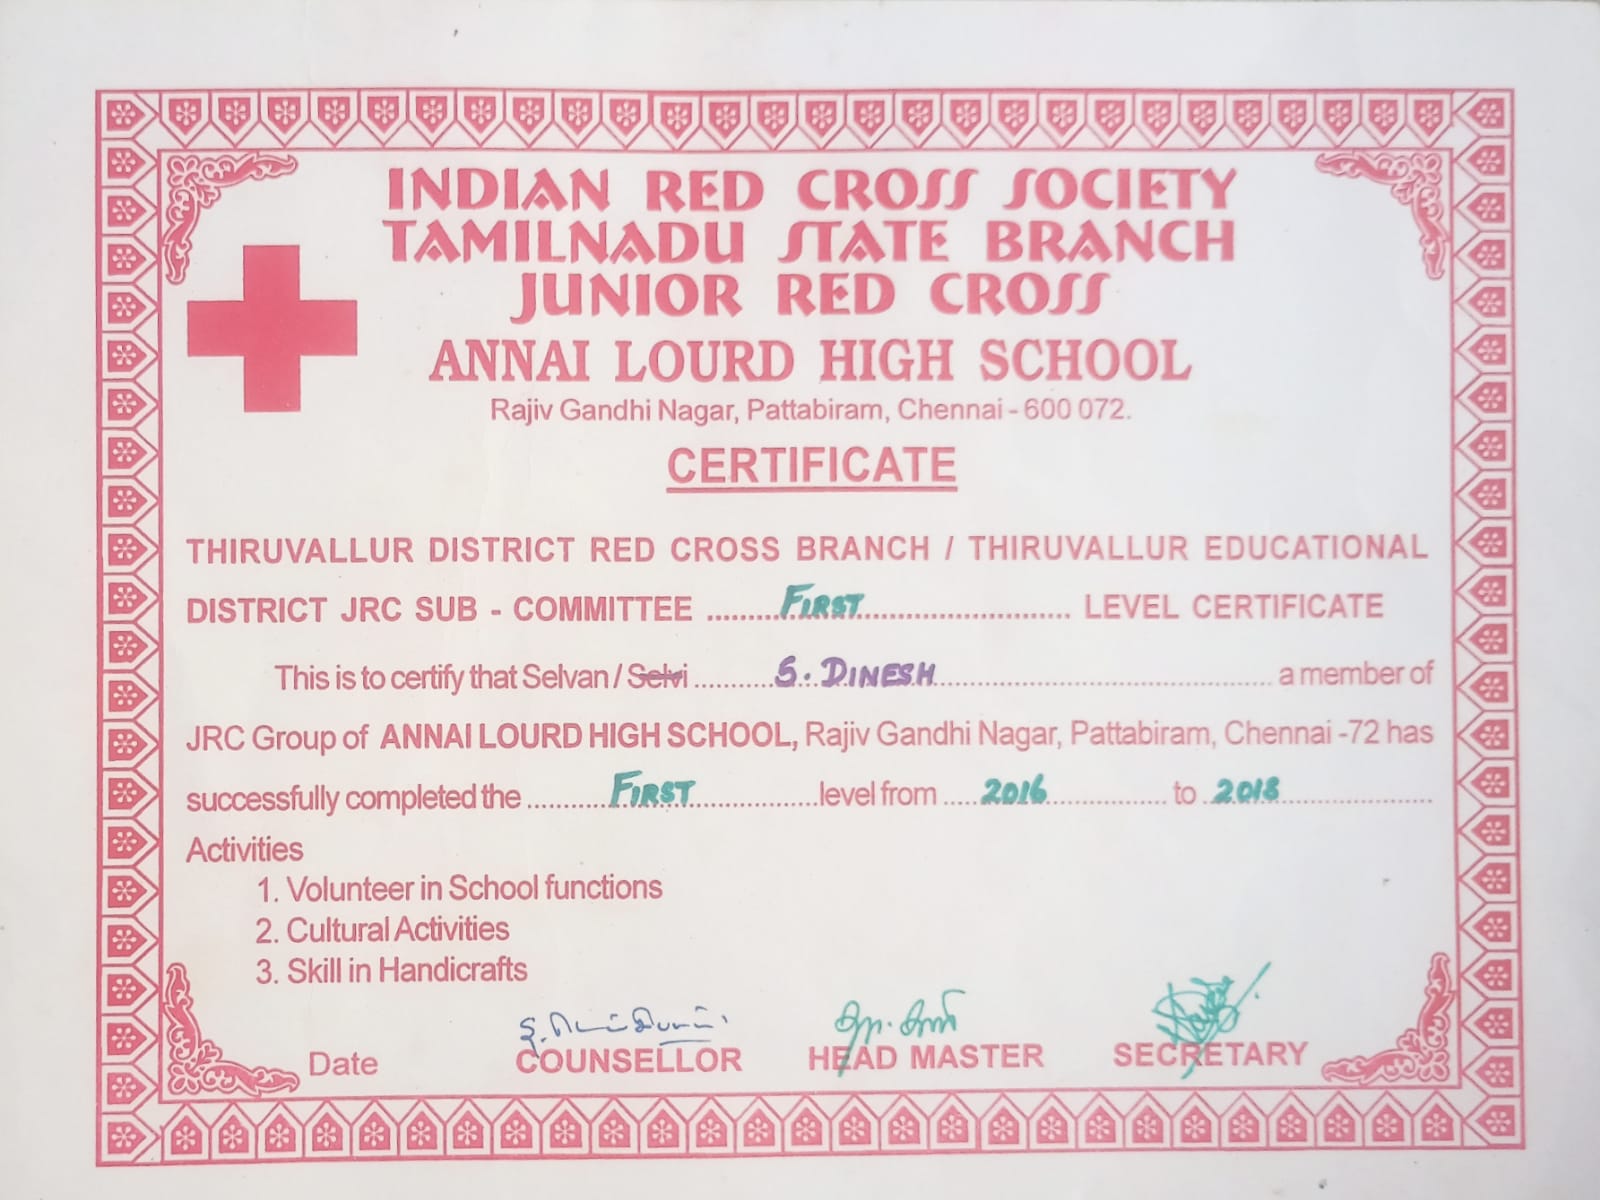 INDIAN RED CROSS SOCIETY
TAMILNADU STATE BRANCH
JUNIOR RED CROSS
ANNAI LOURD HIGH SCHOOL
Rajiv Gandhi Nagar, Pattabiram, Chennai - 600 072.
CERTIFICATE
THIRUVALLUR DISTRICT RED CROSS BRANCH / THIRUVALLUR EDUCATIONAL
DISTRICT JRC SUB - COMMITTEE ........FIRST................................ LEVEL CERTIFICATE
This is to certify that Selvan / Selvi ..........S. DINESH........................................ a member of
JRC Group of ANNAI LOURD HIGH SCHOOL, Rajiv Gandhi Nagar, Pattabiram, Chennai -72 has
successfully completed the ...........FIRST.................level from .....2016................ to ..2018......................
Activities
1. Volunteer in School functions
2. Cultural Activities
3. Skill in Handicrafts
Date COUNSELLOR HEAD MASTER SECRETARY